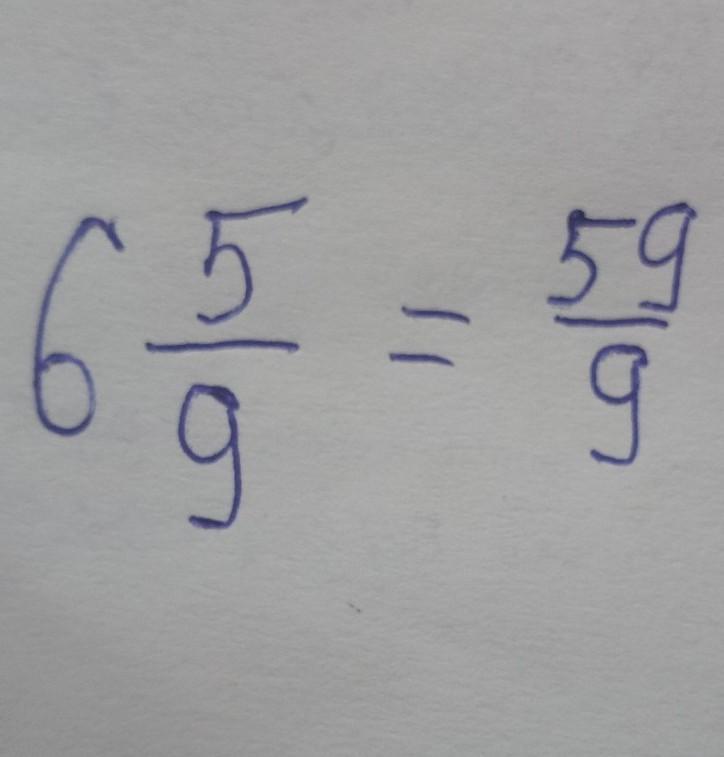 6 5/9 = 59/9